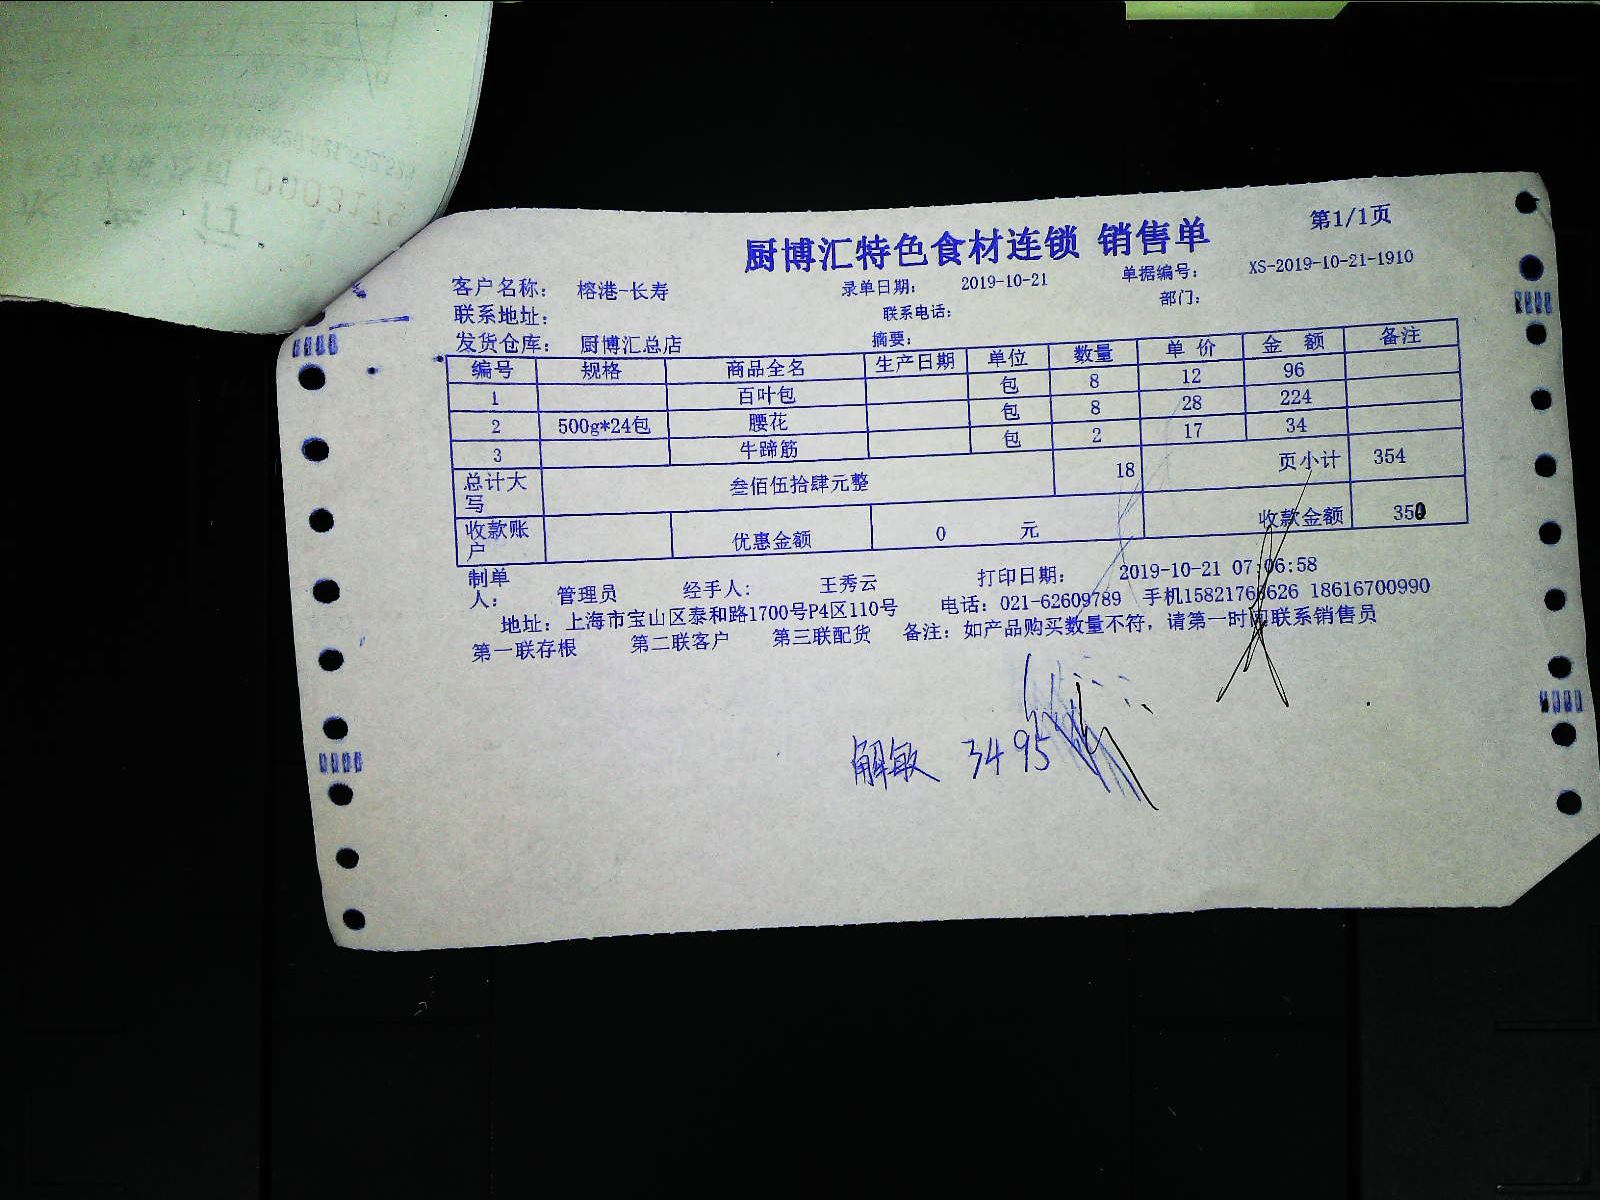 厨博汇特色食材连锁 销售单
第1/1页
客户名称： 榕港-长寿 录单日期： 2019-10-21 单据编号： XS-2019-10-21-1910
联系地址： 联系电话： 部门：
发货仓库： 厨博汇总店 摘要：
编号 规格 商品全名 生产日期 单位 数量 单 价 金 额 备注
1 百叶包 包 8 12 96
2 500g*24包 腰花 包 8 28 224
3 牛蹄筋 包 2 17 34
总计大写 叁佰伍拾肆元整 18 页小计 354
收款账户 优惠金额 0 元 收款金额 350
制单人： 管理员 经手人： 王秀云 打印日期： 2019-10-21 07:06:58
地址：上海市宝山区泰和路1700号P4区110号 电话：021-62609789 手机15821766626 18616700990
第一联存根 第二联客户 第三联配货 备注：如产品购买数量不符，请第一时间联系销售员
解敏 3495